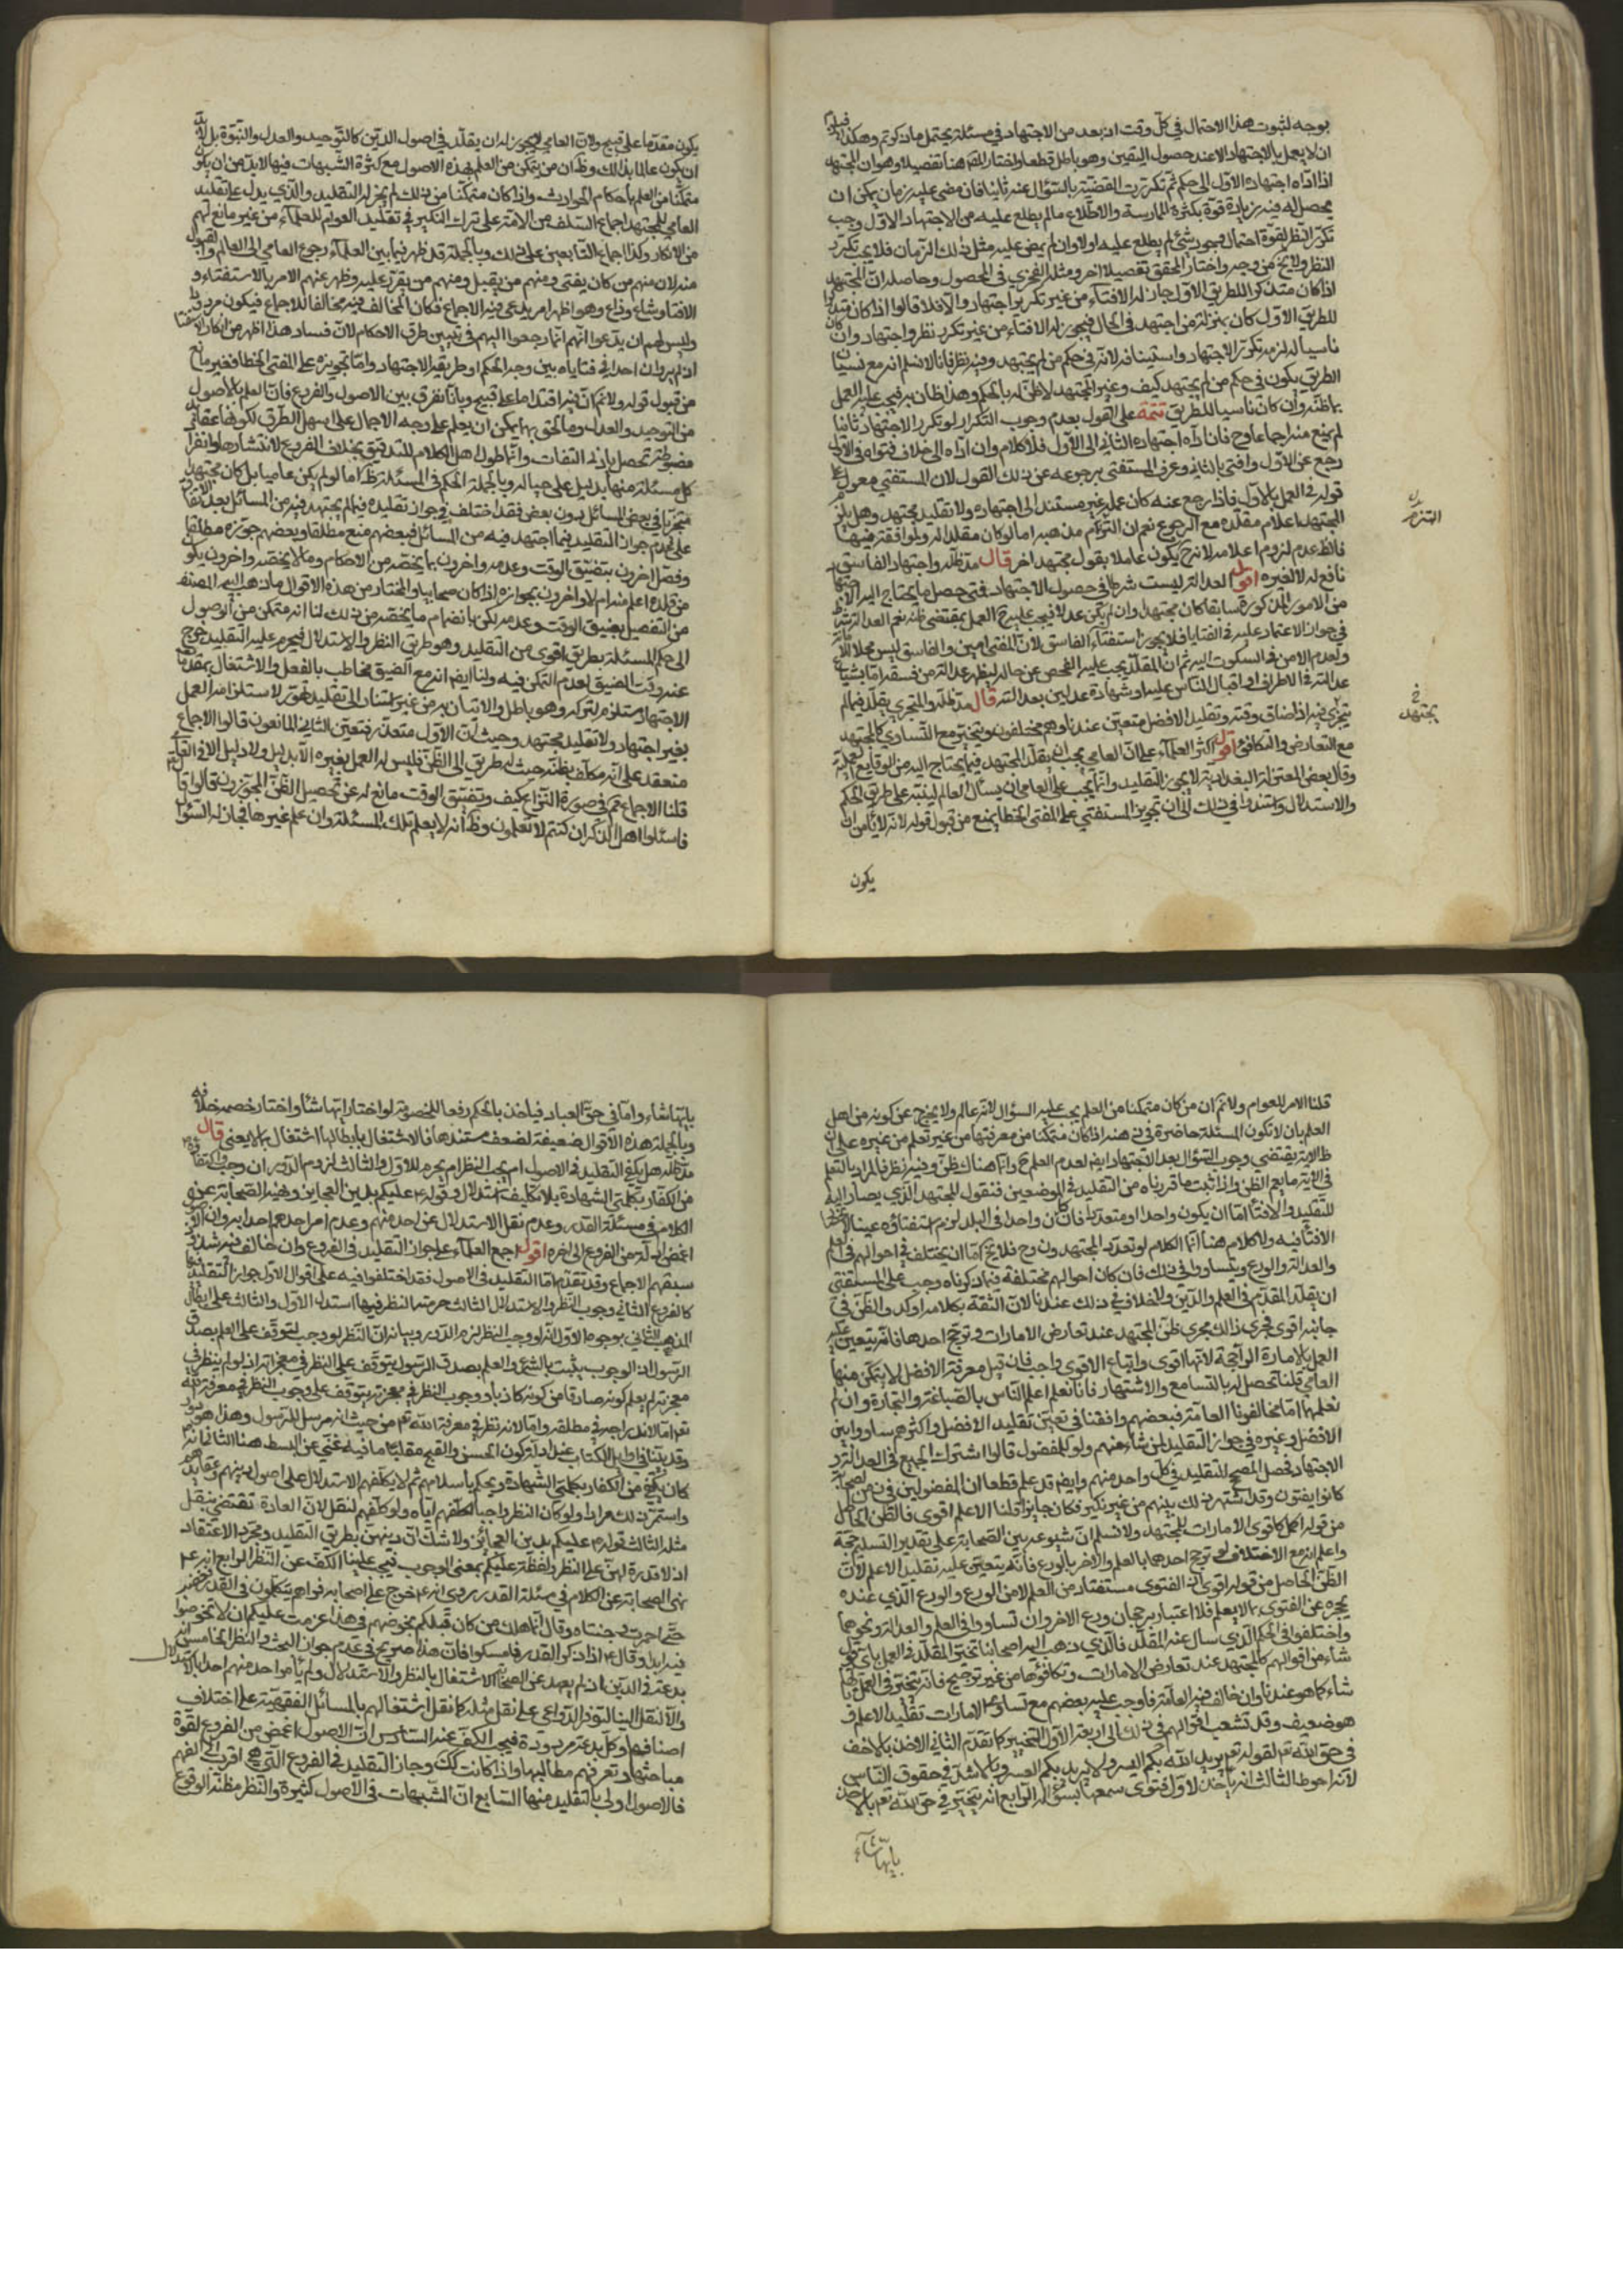 بوجه لثبوت هذا الاحتمال في كل وقت اذ بعد من الاجتهاد في مسئلة يحتمل ماذكرتم وهكذا
ان لا يعمل بالاجتهاد الا عند حصول اليقين وهو باطل قطعا واختار المص هنا تفصيلا وهو ان المجتهد
اذا اداه اجتهاده الاول الى حكم ثم تكررت القضية بالسؤال عنه ثانيا فان مضى عليه زمان يمكن ان
يحصل له فيه زيادة قوة بكثرة الممارسة والاطلاع مالم يطلع عليه من الاجتهاد الاول وجب
تكرر النظر لقوة احتمال وجود شئ لم يطلع عليه اولا وان لم يمض عليه مثل ذلك الزمان فلا يجب تكرر
النظر ولا يخ من وجه واختار المحقق تفصيلا اخر ومثله الفخري في المحصول وحاصله ان المجتهد
اذا كان متذكرا للطريق الاول جاز له الافتاء من غير تكرير اجتهاد والا فلا قالوا اذا كان متذكرا
للطريق الاول كان بمنزلة من اجتهد في الحال فيجوز له الافتاء من غير تكرر نظر واجتهاد وان كان
ناسيا له لزمه تكرر الاجتهاد واستينافه لانه في حكم من لم يجتهد وفيه نظر فانا لا نسلم انه مع نسيان
الطريق يكون في حكم من لم يجتهد كيف وغير المجتهد لا ظن له بالحكم وهذا ظان به فيجب عليه العمل
بما ظنه وان كان ناسيا للطريق تتمة على القول بعدم وجوب التكرار لو تكرر الاجتهاد ثانيا
لم يمنع منه اجماعا وح فان اداه اجتهاده الثاني الى الاول فلا كلام وان اداه الى خلاف فتواه في الاول
رجع عن الاول وافتى بالثاني وعرف المستفتي برجوعه عن ذلك القول لان المستفتي معول على
قوله في العمل بالاول فاذا رجع عنه كان عمله غير مستند الى اجتهاده ولا تقليد مجتهد وهل يلزم
المجتهد اعلام مقلده مع الرجوع نعم ان التزم مذهبه اما لو كان مقلدا له ولموافقه فيها
فالظ عدم لزوم اعلامه لانه ح يكون عاملا بقول مجتهد اخر قال مد ظله واجتهاد الفاسق
نافع له لا لغيره اقول العدالة ليست شرطا في حصول الاجتهاد فمتى حصل ما يحتاج اليه الاجتهاد
من الامور المذكورة سابقا كان مجتهدا وان لم يكن عدلا فيجب عليه ح العمل بمقتضى ظنه نعم العدالة شرط
في جواز الاعتماد عليه في الفتايا فلا يجوز استفتاء الفاسق لان المفتي امين والفاسق ليس محلا للامانة
ولعدم الامن في السكون اليه ثم ان المقلد يجب عليه الفحص عن حاله ليظهر عدالته من فسقه اما بشياع
عدالته في الاطراف او اقبال الناس عليه او شهادة عدلين بعدالته قال مد ظله والمتجزي يقلد فيما لم
يتجزى فيه اذا ضاق وقته وتقليد الافضل متعين عندنا وهم مختلفون ويتخير مع التساوي كالمجتهد
مع التعارض والتكافؤ اقول اكثر العلماء على ان العامي يجب ان يقلد المجتهد فيما يحتاج اليه من الوقايع العملية
وقال بعض المعتزلة البغدادية لا يجوز التقليد وانما يجب على العامي ان يسأل العالم لينبه على طريق الحكم
والاستدلال واستندوا في ذلك الى ان تجويز المستفتي على المفتي الخطا يمنع من قبول قوله لانه لا يأمن ان
يكون
يكون مقدما على قبيح ولان العامي لا يجوز له ان يقلد في اصول الدين كالتوحيد والعدل والنبوة بل لابد
ان يكون عالما بذلك وظ ان من يتمكن من العلم بهذه الاصول مع كثرة الشبهات فيها لا بد من ان يكون
متمكنا من العلم باحكام الحوادث واذا كان متمكنا من ذلك لم يجز له التقليد والذي يدل على تقليد
العامي للمجتهد اجماع السلف من الامة على ترك النكير في تقليد العوام للعلماء من غير مانع لهم
من الانكار وكذا اجماع التابعين على ذلك وبالجملة قد ظهر فيما بين العلماء رجوع العامي الى العالم والقبول
منه لان منهم من كان يفتي ومنهم من يقبل ومنهم من يقرر عليه وظهر عنهم الامر بالاستفتاء و
الافتاء وشاع وذاع وهو اظهر امر يدعى فيه الاجماع فكان المخالف فيه مخالفا للاجماع فيكون مردودا
وليس لهم ان يدعوا انهم انما رجعوا اليهم في تبيين طرق الاحكام لان فساد هذا اظهر من انكار الاستفتاء
اذ لم يروا ان احدا في فتاياه بين وجه الحكم او طريقة الاجتهاد واما تجويزه على المفتي الخطا فغير مانع
من قبول قوله ولا نم ان فيه اقتداما على قبيح وبانا نفرق بين الاصول والفروع فان العلم بالاصول
من التوحيد والعدل وما لحق بهما يمكن ان يعلم على وجه الاجمال على اسهل الطرق لكونها عقلية
مضبوطة تحصل بادنى التفات وانما طول اهل الكلام للتدقيق بخلاف الفروع لانتشارها وانفراد
كل مسئلة منها بدليل على حياله وبالجملة الحكم في المسئلة ظ اما لو لم يكن عاميا بل كان مجتهدا
متجزيا في بعض المسائل دون بعض فقد اختلف في جواز تقليده فيما لم يجتهد فيه من المسائل بعد الاتفاق
على عدم جواز التقليد فيما اجتهد فيه من المسائل فبعضهم منع مطلقا وبعضهم جوزه مطلقا
وفصل اخرون بتضيق الوقت وعدمه واخرون بما يخصه من الاحكام وما لا يخصه واخرون بكون
من قلده اعلم منه ام لا واخرون بجوازه اذا كان صحابيا والمختار من هذه الاقوال ما ذهب اليه المصنف
من التفصيل بضيق الوقت وعدمه لكن بانضمام ما يخصه من ذلك لنا انه متمكن من الوصول
الى حكم المسئلة بطريق اقوى من التقليد وهو طريق النظر والاستدلال فيحرم عليه التقليد خرج
عنه وقت الضيق لعدم التمكن فيه ولنا ايضا انه مع الضيق مخاطب بالفعل والاشتغال بمقدمات
الاجتهاد مستلزم لتركه وهو باطل والاتيان به من غير استناد الى تقليد لاستلزامه العمل
بغير اجتهاد ولا تقليد مجتهد وحيث ان الاول متعذر فتعين الثاني المانعون قالوا الاجماع
منعقد على انه مكلف بظنه حيث له طريق الى الظن فليس له العمل بغيره الا بدليل ولا دليل
قلنا الاجماع تم في صورة النزاع كيف وتضيق الوقت مانع له عن تحصيل الظن المجوزون قالوا قال
فاسئلوا اهل الذكر ان كنتم لا تعلمون وظ انه لا يعلم تلك المسئلة وان علم غيرها فجاز له السؤال
قلنا الامر للعوام ولا نم ان من كان متمكنا من العلم يجب عليه السؤال لانه عالم ولا يخرج عن كونه من اهل
العلم بان لا تكون المسئلة حاضرة في ذهنه اذا كان متمكنا من معرفتها من غير تعلم من غيره على ان
ظ الاية يقتضي وجوب السؤال بعد الاجتهاد ايضا لعدم العلم ح وانما هناك ظن وفيه نظر فالمراد بالعلم
في الاية ما يعم الظن واذا ثبت ما قررناه من التقليد في الموضعين فنقول المجتهد الذي يصار اليه
للتقليد والافتاء اما ان يكون واحدا او متعددا فان كان واحدا في البلد لزم استفتاؤه عينا
الافتا فيه ولا كلام هنا انما الكلام لو تعدد المجتهدون وح فلا يخ اما ان يختلف في احوالهم في العلم
والعدالة والورع ويتساووا في ذلك فان كان احوالهم مختلفة فيما ذكرناه وجب على المستفتي
ان يقلد المقدم في العلم والدين ولا خلاف في ذلك عندنا لان الثقة بكلامه اوكد والظن في
جانبه اقوى فجرى ذلك مجرى ظن المجتهد عند تعارض الامارات وترجح احدها فانه يتعين عليه
العمل بالامارة الراجحة لانها اقوى واتباع الاقوى واجب فان قيل معرفة الافضل لا يتمكن منها
العامي قلنا تحصل له بالتسامع والاشتهار فانا نعلم اعلم الناس بالصياغة والتجارة وان لم
نعلمها اما مخالفونا العامة فبعضهم وافقنا في تعين تقليد الافضل واكثرهم ساووا بين
الافضل وغيره في جواز التقليد لمن شاء منهم ولو للمفضول قالوا اشتراك الجميع في العدالة و
الاجتهاد فصل المصحح للتقليد في كل واحد منهم وايضا قد علم قطعا ان المفضولين في زمن الصحابة
كانوا يفتون وقد اشتهر ذلك بينهم من غير نكير فكان جايزا قلنا الاعلم اقوى فالظن الحاصل
من قوله اكمل كاقوى الامارات للمجتهد ولا نسلم ان شيوعه بين الصحابة على تقدير التسليم حجة
واعلم انه مع الاختلاف لو ترجح احدهما بالعلم والاخر بالورع فانه يتعين عليه تقليد الاعلم لان
الظن الحاصل من قوله اقوى اذ الفتوى مستفتاد من العلم لا من الورع والورع الذي عنده
يحجزه عن الفتوى بما لا يعلم فلا اعتبار برجحان ورع الاخر وان تساووا في العلم والعدالة ونحوهما
واختلفوا في الحكم الذي سال عنه المقلد فالذي ذهب اليه اصحابنا تخير المقلد في العمل باي قول
شاء من اقوالهم كالمجتهد عند تعارض الامارات وتكافؤها من غير ترجيح فانه يتخير في العمل بايها
شاء كما هو عندنا وان خالف فيه العامة فاوجب عليه بعضهم مع تساوي الامارات تقليد الاعلم و
هو ضعيف وقد تشعب اقوالهم في ذلك الى اربعة الاول التخيير كما تقدم الثاني الاخذ بالاخف
في حق الله تعم لقوله تعم يريد الله بكم اليسر ولا يريد بكم العسر وبالاشد في حقوق الناس
لانه احوط الثالث انه يأخذ لاول فتوى سمعها بسؤاله الرابع انه يتخير في حق الله تعم بالاخذ
بايها شاء
بايها شاء واما في حق العباد فياخذ بالحكم رفعا للخصومة لو اختار ايها شاء واختار خصمه خلافه
وبالجملة هذه الاقوال ضعيفة لضعف مستندها فالاشتغال بابطالها اشتغال بما لا يعني قال
مد ظله هل يكفي التقليد في الاصول ام يجب النظر ام يحرم للاول والثالث لزوم الدور ان وجب واكتفا
من الكفار بكلمتي الشهادة بلا تكليف استدلال وقوله ع عليكم بدين العجايز ونهيه الصحابة عن
الكلام في مسئلة القدر وعدم نقل الاستدلال عن احد منهم وعدم امر احدهم احدا به وان الاصول
اغمض ادلة من الفروع الى اخره اقول اجمع العلماء على جواز التقليد في الفروع وان خالف فيه شذوذ
سبقهم الاجماع وقد تقدم اما التقليد في الاصول فقد اختلفوا فيه على اقوال الاول جواز التقليد فيها
كالفروع الثاني وجوب النظر والاستدلال الثالث حرمة النظر فيها استدل الاول والثالث على ابطال
المذهب الثاني بوجوه الاول انه لو وجب النظر لزم الدور وبيانه ان النظر لو وجب لتوقف على العلم بصدق
الرسول اذ الوجوب يثبت بالشرع والعلم بصدق الرسول يتوقف على النظر في معجزاته اذ لو لم ينظر في
معجزته لم يعلم كونه صادقا من كونه كاذبا ووجوب النظر في معجزته يتوقف على وجوب النظر في معرفة الله
تعم اما لاندراجه في مطلقه واما لانه نظر في معرفة الله تعم من حيث انه مرسل للرسول وهذا هو الدور
وقد بينا في طي الكتاب عند ادلة كون الحسن والقبح عقليا ما فيه غنى عن البسط هنا الثاني انه
كان يكتفي من الكفار بكلمتي الشهادة ويحكم باسلامهم ثم لا يكلفهم الاستدلال على اصول دينهم وعقايدهم
واستمر ذلك مرارا ولو كان النظر واجبا لكلفهم اياه ولو كلفهم لنقل لان العادة تقتضي بنقل
مثله الثالث قوله ع عليكم بدين العجائز ولا شك ان دينهن بطريق التقليد ومجرد الاعتقاد
اذ لا قدرة لهن على النظر ولفظة عليكم بمعنى الوجوب فيجب علينا الكف عن النظر الرابع انه ع
نهى الصحابة عن الكلام في مسئلة القدر روي انه ع خرج على اصحابه فراهم يتكلمون في القدر فغضب
حتى احمرت وجنتاه وقال انما هلك من كان قبلكم بخوضهم في هذا عزمت عليكم ان لا تخوضوا
فيه ابدا وقال ع اذا ذكر القدر فامسكوا فان هذا صريح في عدم جواز البحث والنظر الخامس ان
بدعة في الدين اذ لم يعهد عن الصحابة الاشتغال بالنظر والاستدلال ولم يأمر احد منهم احدا بالاستدلال
والا لنقل الينا لتوفر الدواعي على نقل مثله كما نقل اشتغالهم بالمسائل الفقهية على اختلاف
اصنافها وكل بدعة مردودة فيجب الكف عنه السادس ان الاصول اغمض من الفروع لقوة
مباحثها وتعرفهم مطالبها واذا كانت كك وجاز التقليد في الفروع التي هي اقرب الى الفهم
فالاصول اولى بالتقليد منها السابع ان الشبهات في الاصول كثيرة والنظر مظنة الوقوع